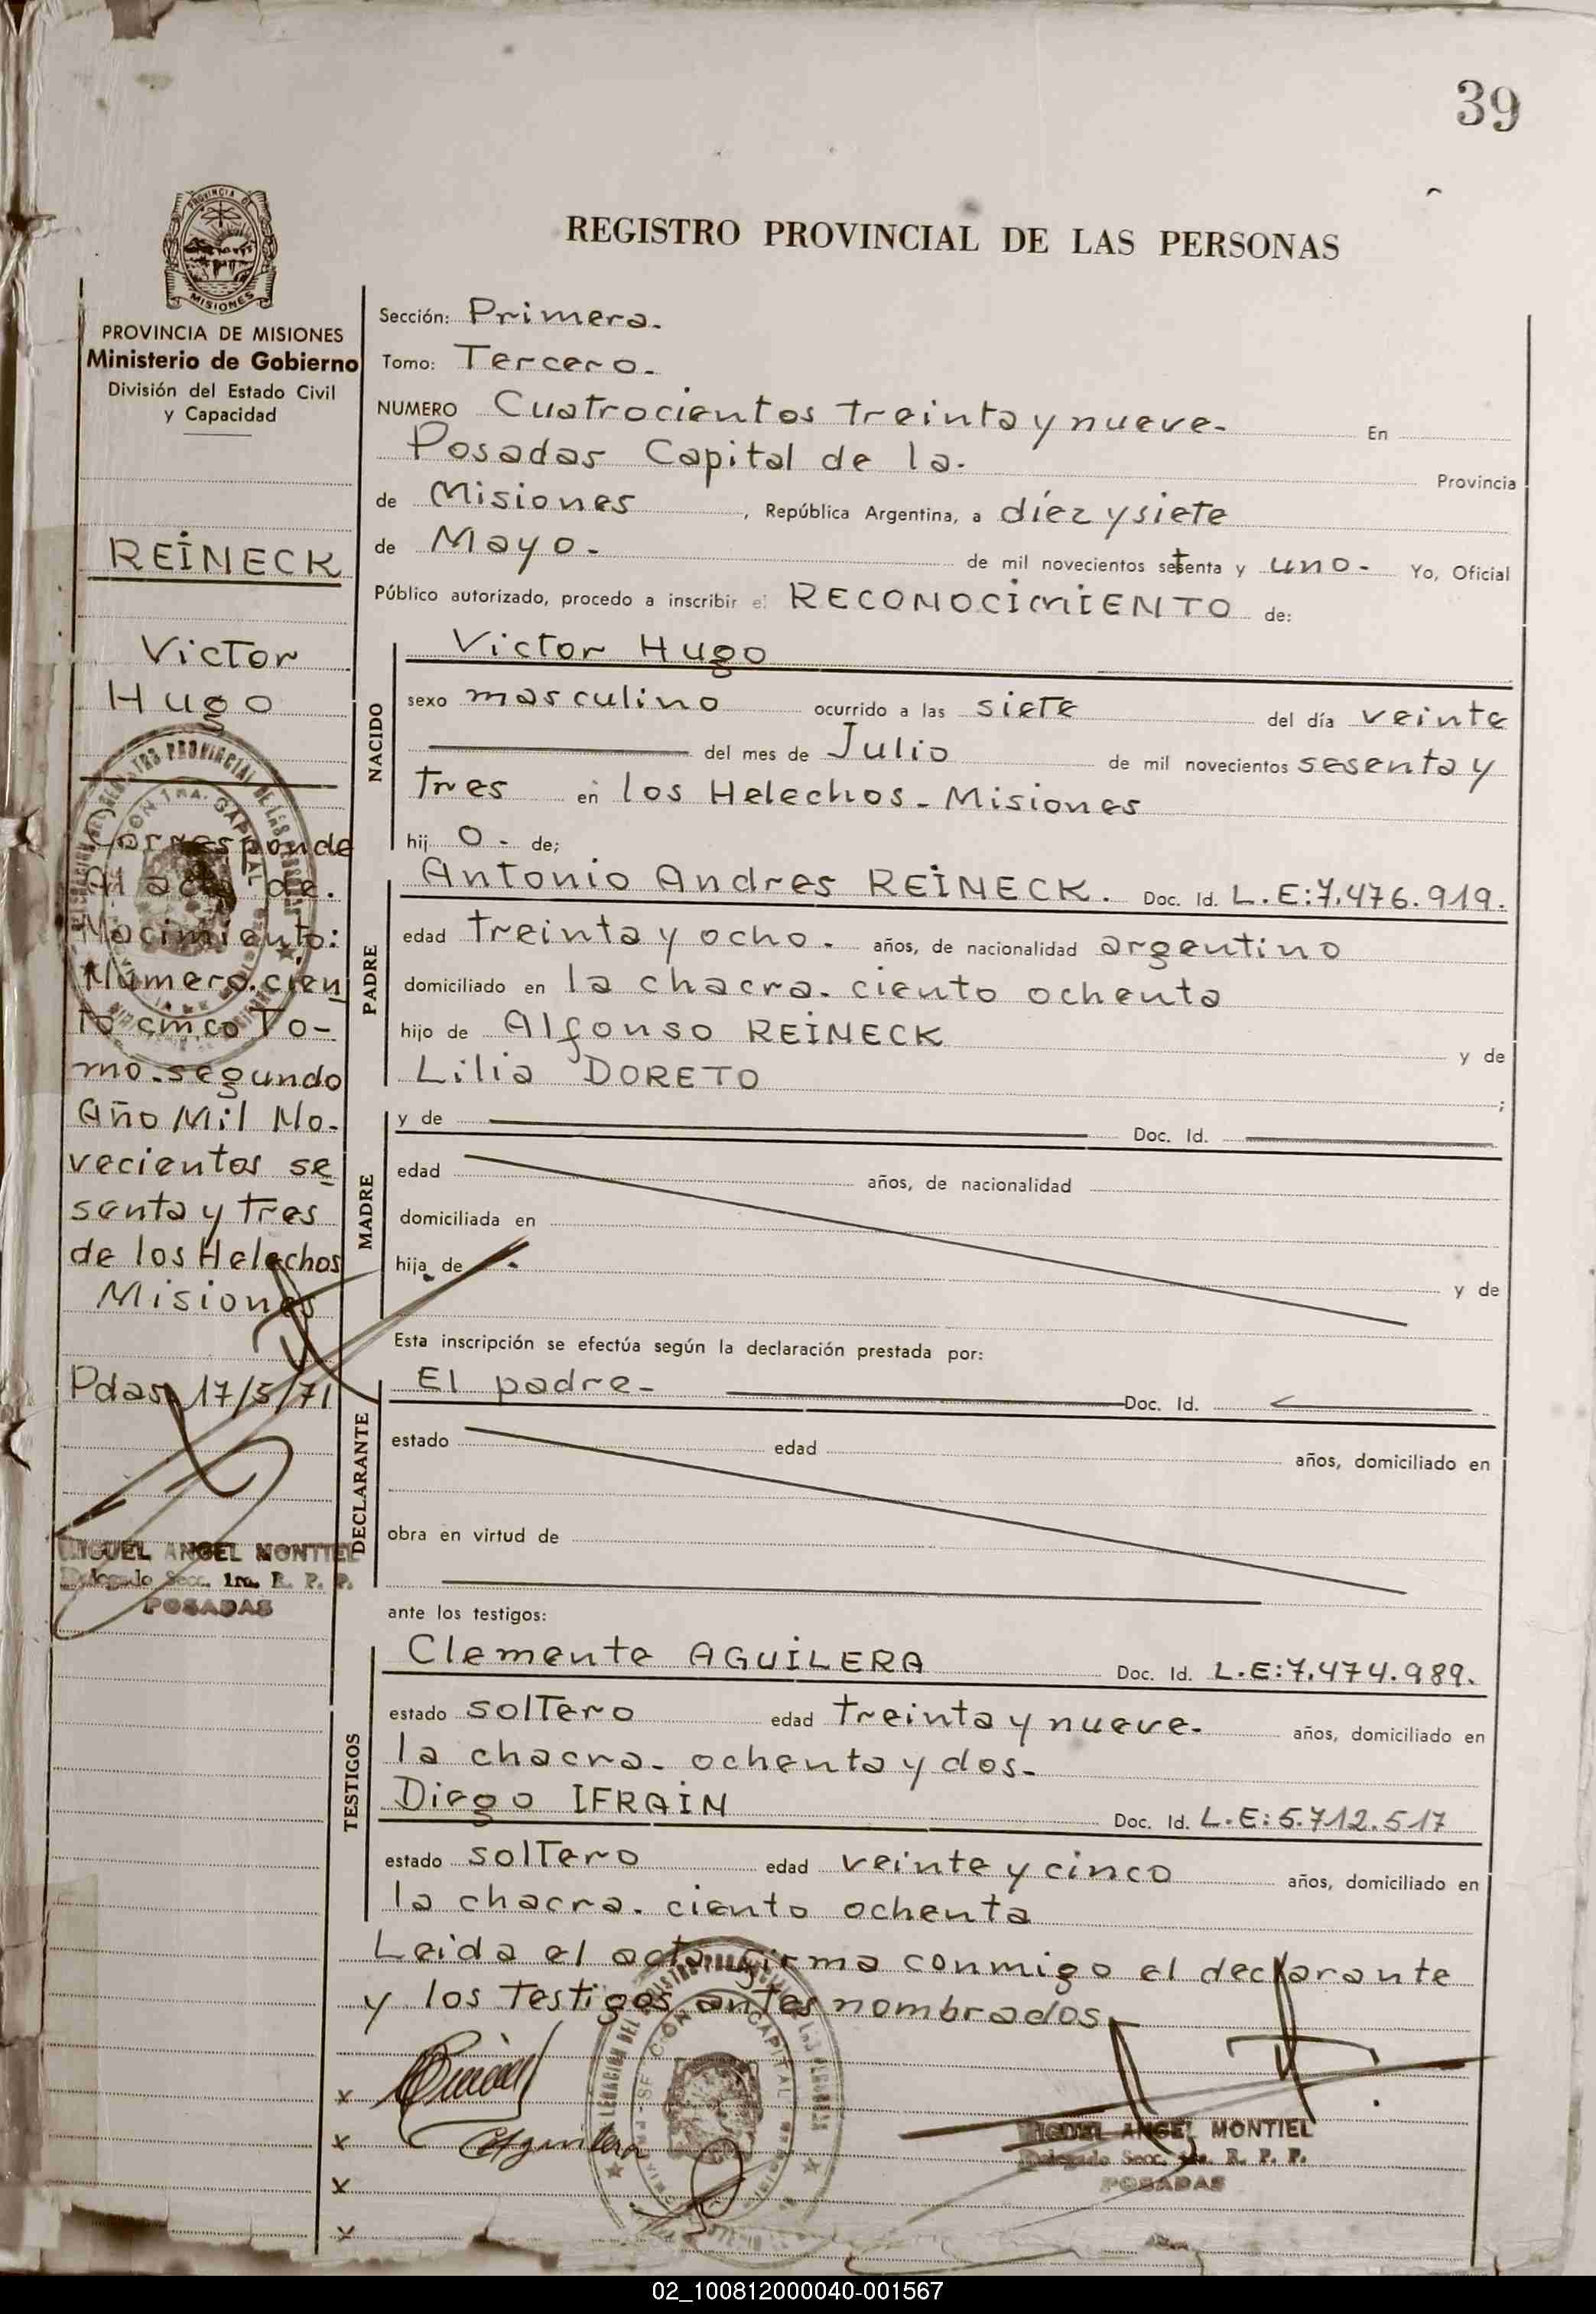 39
REGISTRO PROVINCIAL DE LAS PERSONAS
PROVINCIA DE MISIONES
Ministerio de Gobierno
División del Estado Civil
y Capacidad
REINECK
Victor
Hugo
Corresponde
Al acta de.
Nacimiento:
Número. cien
to cinco To-
mo. segundo
Año Mil No-
vecientos se
senta y tres
de los Helechos
Misiones
Pdas, 17/5/71
MIGUEL ANGEL MONTIEL
Delegado Secc. 1ra. R. P. P.
POSADAS
Sección: Primera.
Tomo: Tercero.
NUMERO Cuatrocientos treinta y nueve- En
Posadas Capital de la. Provincia
de Misiones, República Argentina, a diez y siete
de Mayo. de mil novecientos setenta y uno- Yo, Oficial
Público autorizado, procedo a inscribir el RECONOCIMIENTO de:
NACIDO
Victor Hugo
sexo masculino ocurrido a las siete del día veinte
del mes de Julio de mil novecientos sesenta y
tres en los Helechos. Misiones
hij o- de;
PADRE
Antonio Andres REINECK. Doc. Id. L.E:7.476.919.
edad treinta y ocho. años, de nacionalidad argentino
domiciliado en la chacra. ciento ochenta
hijo de Alfonso REINECK y de
Lilia DORETO ;
MADRE
y de Doc. Id.
edad años, de nacionalidad
domiciliada en
hija de y de
Esta inscripción se efectúa según la declaración prestada por:
DECLARANTE
El padre- Doc. Id.
estado edad años, domiciliado en
obra en virtud de
ante los testigos:
TESTIGOS
Clemente AGUILERA Doc. Id. L.E:7.474.989.
estado soltero edad treinta y nueve. años, domiciliado en
la chacra. ochenta y dos-
Diego IFRAIN Doc. Id. L.E:5.712.517
estado soltero edad veinte y cinco años, domiciliado en
la chacra. ciento ochenta
Leida el acta firma conmigo el declarante
y los testigos antes nombrados.
x
x CAguilera
x
x
MIGUEL ANGEL MONTIEL
Delegado Secc. 1ra. R. P. P.
POSADAS
02_100812000040-001567